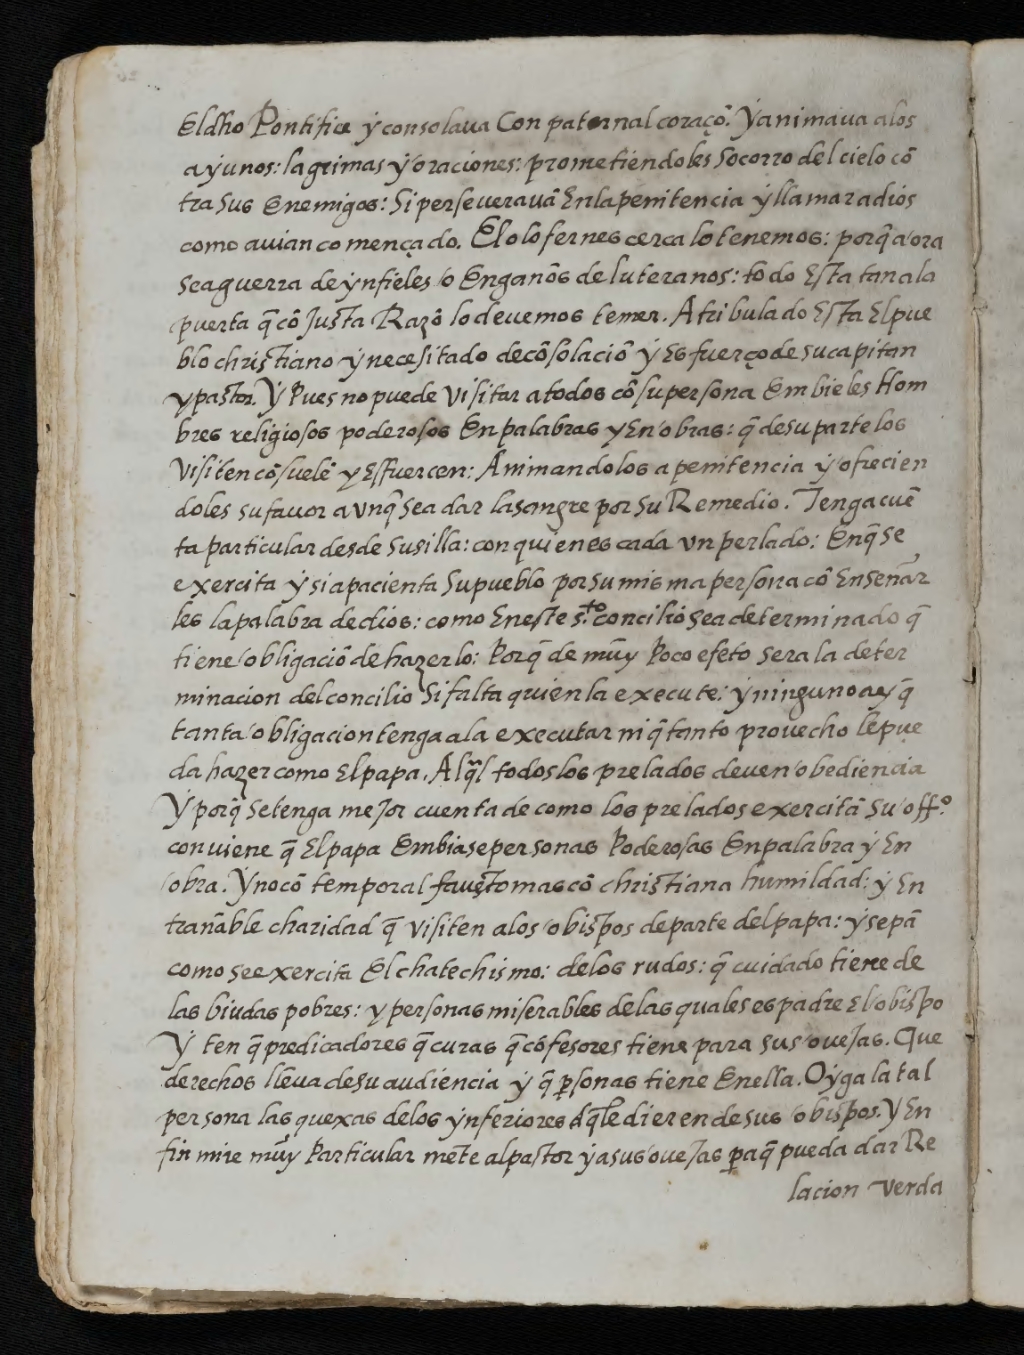 Eldho Pontifice ẏ consolaua Con paternal coraçō. Ẏ animaua alos
aẏunos: lagrimas ẏ oraciones: prometiendoles socorro del cielo cō
tra sus Enemigos: Si perseuerauā Enlapenitencia ẏ llamar a dios
como auian començado. El olofernes cerca lo tenemos: porq̄ a ora
sea guerra de ẏnfieles o Engaños de luteranos: todo Esta tan ala
puerta q̄ cō Justa Razō lo deuemos temer. Atribulado Esta El pue
blo christiano ẏ necesitado de cōsolaciō ẏ Esfuerço de su capitan
y pastor. Ẏ Pues no puede visitar a todos cō su persona Embieles Hom
bres religiosos poderosos En palabras y En obras: q̄ de su parte los
visiten cōsuelē y Esfuercen: Animandolos a penitencia ẏ ofrecien
doles su fauor a vnq̄ sea dar la sangre por su Remedio. Tenga cuē
ta particular desde su silla: con quien es cada vn perlado: En q̄ se
exercita ẏ si apacienta su pueblo por su misma persona cō Enseñar
les la palabra de dios: como En este s.to concilio sea determinado q̄
tiene obligaciō de hazerlo: Porq̄ de muy Poco efeto sera la deter
minacion del concilio Si falta quien la execute: ẏ ninguno ay q̄
tanta obligacion tenga ala executar ni q̄ tanto prouecho lē pue
da hazer como El papa. Al q̄l todos los prelados deuen obediencia
Ẏ porq̄ se tenga mejor cuenta de como los prelados exercitā su off.º
conuiene q̄ El papa Embiase personas Poderosas En palabra ẏ En
obra. Ẏ no cō temporal fausto mas cō christiana humildad: ẏ En
trañable charidad q̄ visiten alos obispos de parte del papa: ẏ sepā
como se exercita El chatechismo: delos rudos: q̄ cuidado tiene de
las biudas pobres: y personas miserables delas quales es padre El obispo
Ẏ ten q̄ predicadores q̄ curas q̄ cōfesores tiene para sus ouejas. Que
derechos lleua de su audiencia ẏ q̄ p̱sonas tiene En ella. Oẏga la tal
persona las quexas delos ẏnferiores q̄ le dieren de sus obispos. Ẏ En
fin mire muẏ Particular mēte al pastor ẏ a sus ouejas p̱a q̄ pueda dar Re
lacion verda